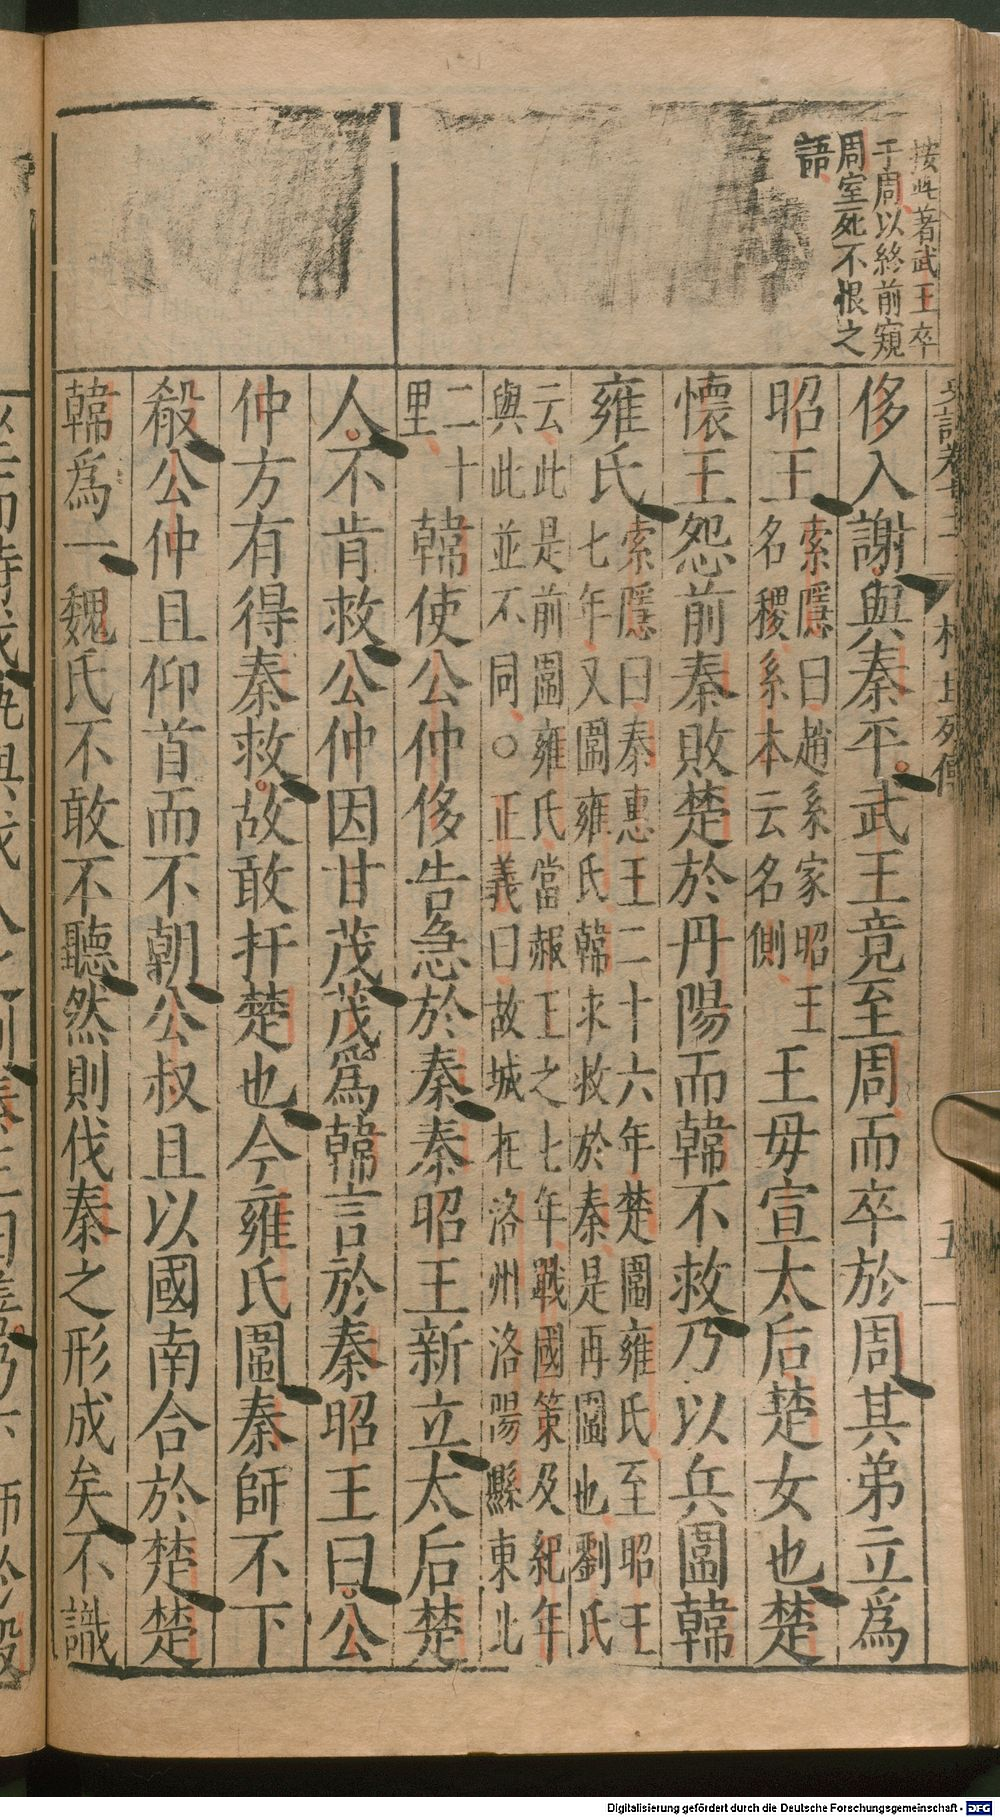 按此著武王卒
于周以終前窺
周室死不恨之
語
史記卷七十一 樗里列傳 五
侈入謝與秦平武王竟至周而卒於周其弟立為
昭王索隱曰趙系家昭王名稷系本云名側王毋宣太后楚女也楚
懷王怨前秦敗楚於丹陽而韓不救乃以兵圍韓
雍氏索隱曰秦惠王二十六年楚圍雍氏至昭王七年又圍雍氏韓求救於秦是再圍也劉氏
云此是前圍雍氏當赧王之七年戰國策及紀年與此並不同○正義曰故城在洛州洛陽縣東北
二十里韓使公仲侈告急於秦秦昭王新立太后楚
人不肯救公仲因甘茂茂爲韓言於秦昭王曰公
仲方有得秦救故敢扞楚也今雍氏圍秦師不下
殽公仲且仰首而不朝公叔且以國南合於楚楚
韓爲一魏氏不敢不聽然則伐秦之形成矣不識
Digitalisierung gefördert durch die Deutsche Forschungsgemeinschaft - DFG